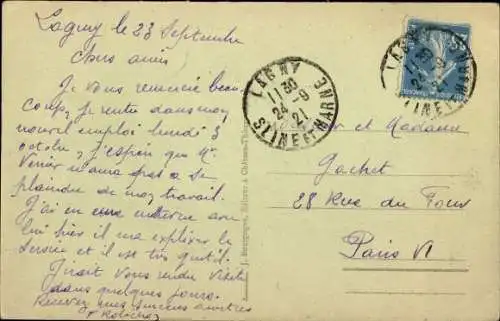 Lagny le 23 Septembre
Chers amis
Je vous remercie beau-
coup, je rentre dans mon
nouvel emploi lundi 3
octobre, j'espère que Mr
Venier n'aura pas a se
plaindre de mon travail.
J'ai eu une entrevue avec
lui hier il m'a expliqué le
service et il est très gentil.
J'irait vous rendre visite
dans quelques jours.
Recevez mes sincères amitiés
LAGNY
11 30
24 -9
21
SEINE ET MARNE
LAGNY
11 30
SEINE ET MARNE
et Madame
Gachet
28 Rue du Four
Paris VI
J. Bourgogne, Éditeur à Château-Thierry